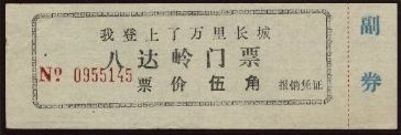 我登上了万里长城
八达岭门票
№ 0955145
票价伍角 报销凭证
副券